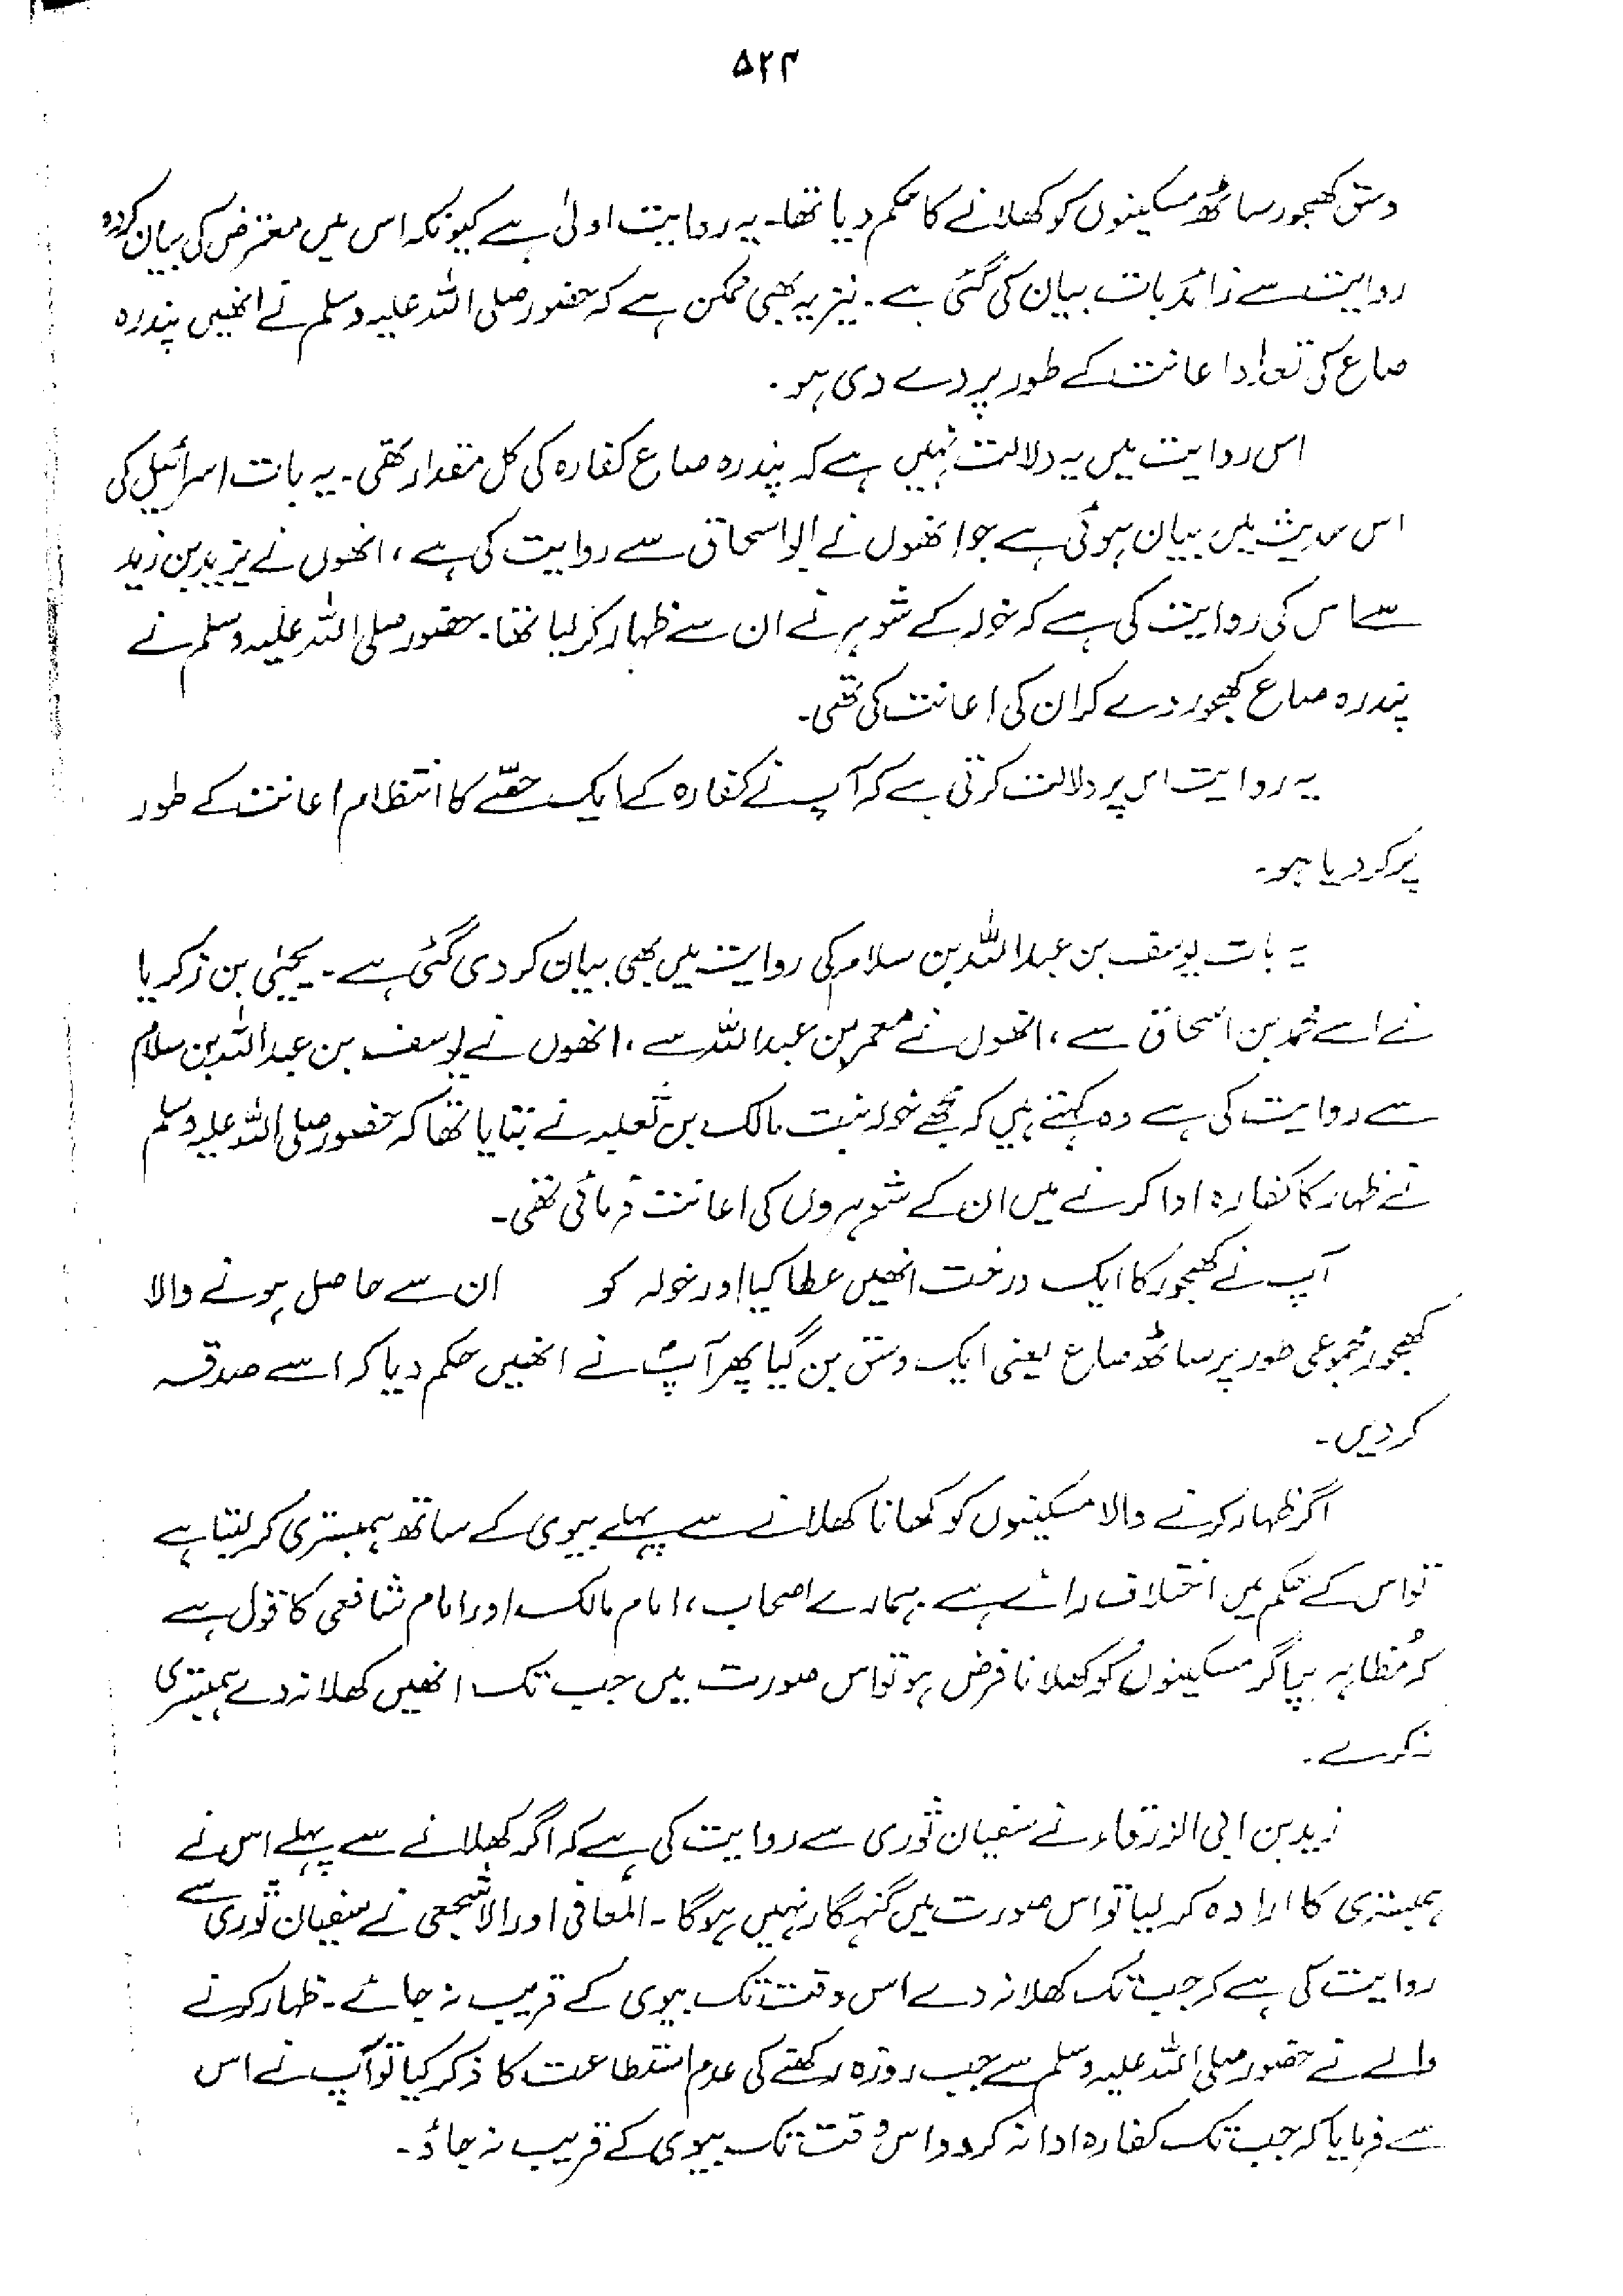 ۵۲۴
وسق کھجور ساٹھ مسکینوں کو کھلانے کا حکم دیا تھا۔ یہ روایت اولیٰ ہے کیونکہ اس میں معترض کی بیان کردہ
روایت سے زائد بات بیان کی گئی ہے۔ نیز یہ بھی ممکن ہے کہ حضور صلی اللہ علیہ وسلم نے انھیں پندرہ
صاع کی تعداد اعانت کے طور پر دے دی ہو۔
اس روایت میں یہ دلالت نہیں ہے کہ پندرہ صاع کفارہ کی کل مقدار تھی۔ یہ بات اسرائیل کی
اس حدیث میں بیان ہوئی ہے جو انھوں نے ابو اسحاق سے روایت کی ہے، انھوں نے یزید بن زید
سے اس کی روایت کی ہے کہ خولہ کے شوہر نے ان سے ظہار کر لیا تھا۔ حضور صلی اللہ علیہ وسلم نے
پندرہ صاع کھجور دے کر ان کی اعانت کی تھی۔
یہ روایت اس پر دلالت کرتی ہے کہ آپ نے کفارہ کے ایک حصّے کا انتظام اعانت کے طور
پر کر دیا ہو۔
یہ بات یوسف بن عبداللہ بن سلام کی روایت میں بھی بیان کر دی گئی ہے۔ یحییٰ بن زکریا
نے اسے محمد بن اسحاق سے، انھوں نے معمر بن عبداللہ سے، انھوں نے یوسف بن عبداللہ بن سلام
سے روایت کی ہے وہ کہتے ہیں کہ مجھے خولہ بنت مالک بن ثعلبہ نے بتایا تھا کہ حضور صلی اللہ علیہ وسلم
نے ظہار کا کفارہ ادا کرنے میں ان کے شوہروں کی اعانت فرمائی تھی۔
آپ نے کھجور کا ایک درخت انھیں عطا کیا اور خولہ کو ان سے حاصل ہونے والا
کھجور مجموعی طور پر ساٹھ صاع یعنی ایک وسق بن گیا پھر آپؐ نے انھیں حکم دیا کہ اسے صدقہ
کر دیں۔
اگر ظہار کرنے والا مسکینوں کو کھانا کھلانے سے پہلے بیوی کے ساتھ ہمبستری کر لیتا ہے
تو اس کے حکم میں اختلاف رائے ہے۔ ہمارے اصحاب، امام مالک اور امام شافعی کا قول ہے
کہ مُظاہر پر اگر مسکینوں کو کھلانا فرض ہو تو اس صورت میں جب تک انھیں کھلا نہ دے ہمبستری
نہ کرے۔
زید بن ابی الزرقاء نے سفیان ثوری سے روایت کی ہے کہ اگر کھلانے سے پہلے اس نے
ہمبستری کا ارادہ کر لیا تو اس صورت میں گنہگار نہیں ہوگا۔ المعافی اور الاشجعی نے سفیان ثوری سے
روایت کی ہے کہ جب تک کھلا نہ دے اس وقت تک بیوی کے قریب نہ جائے۔ ظہار کرنے
والے نے حضور صلی اللہ علیہ وسلم سے جب روزہ رکھنے کی عدم استطاعت کا ذکر کیا تو آپ نے اس
سے فرمایا کہ جب تک کفارہ ادا نہ کر دو اس وقت تک بیوی کے قریب نہ جاؤ۔